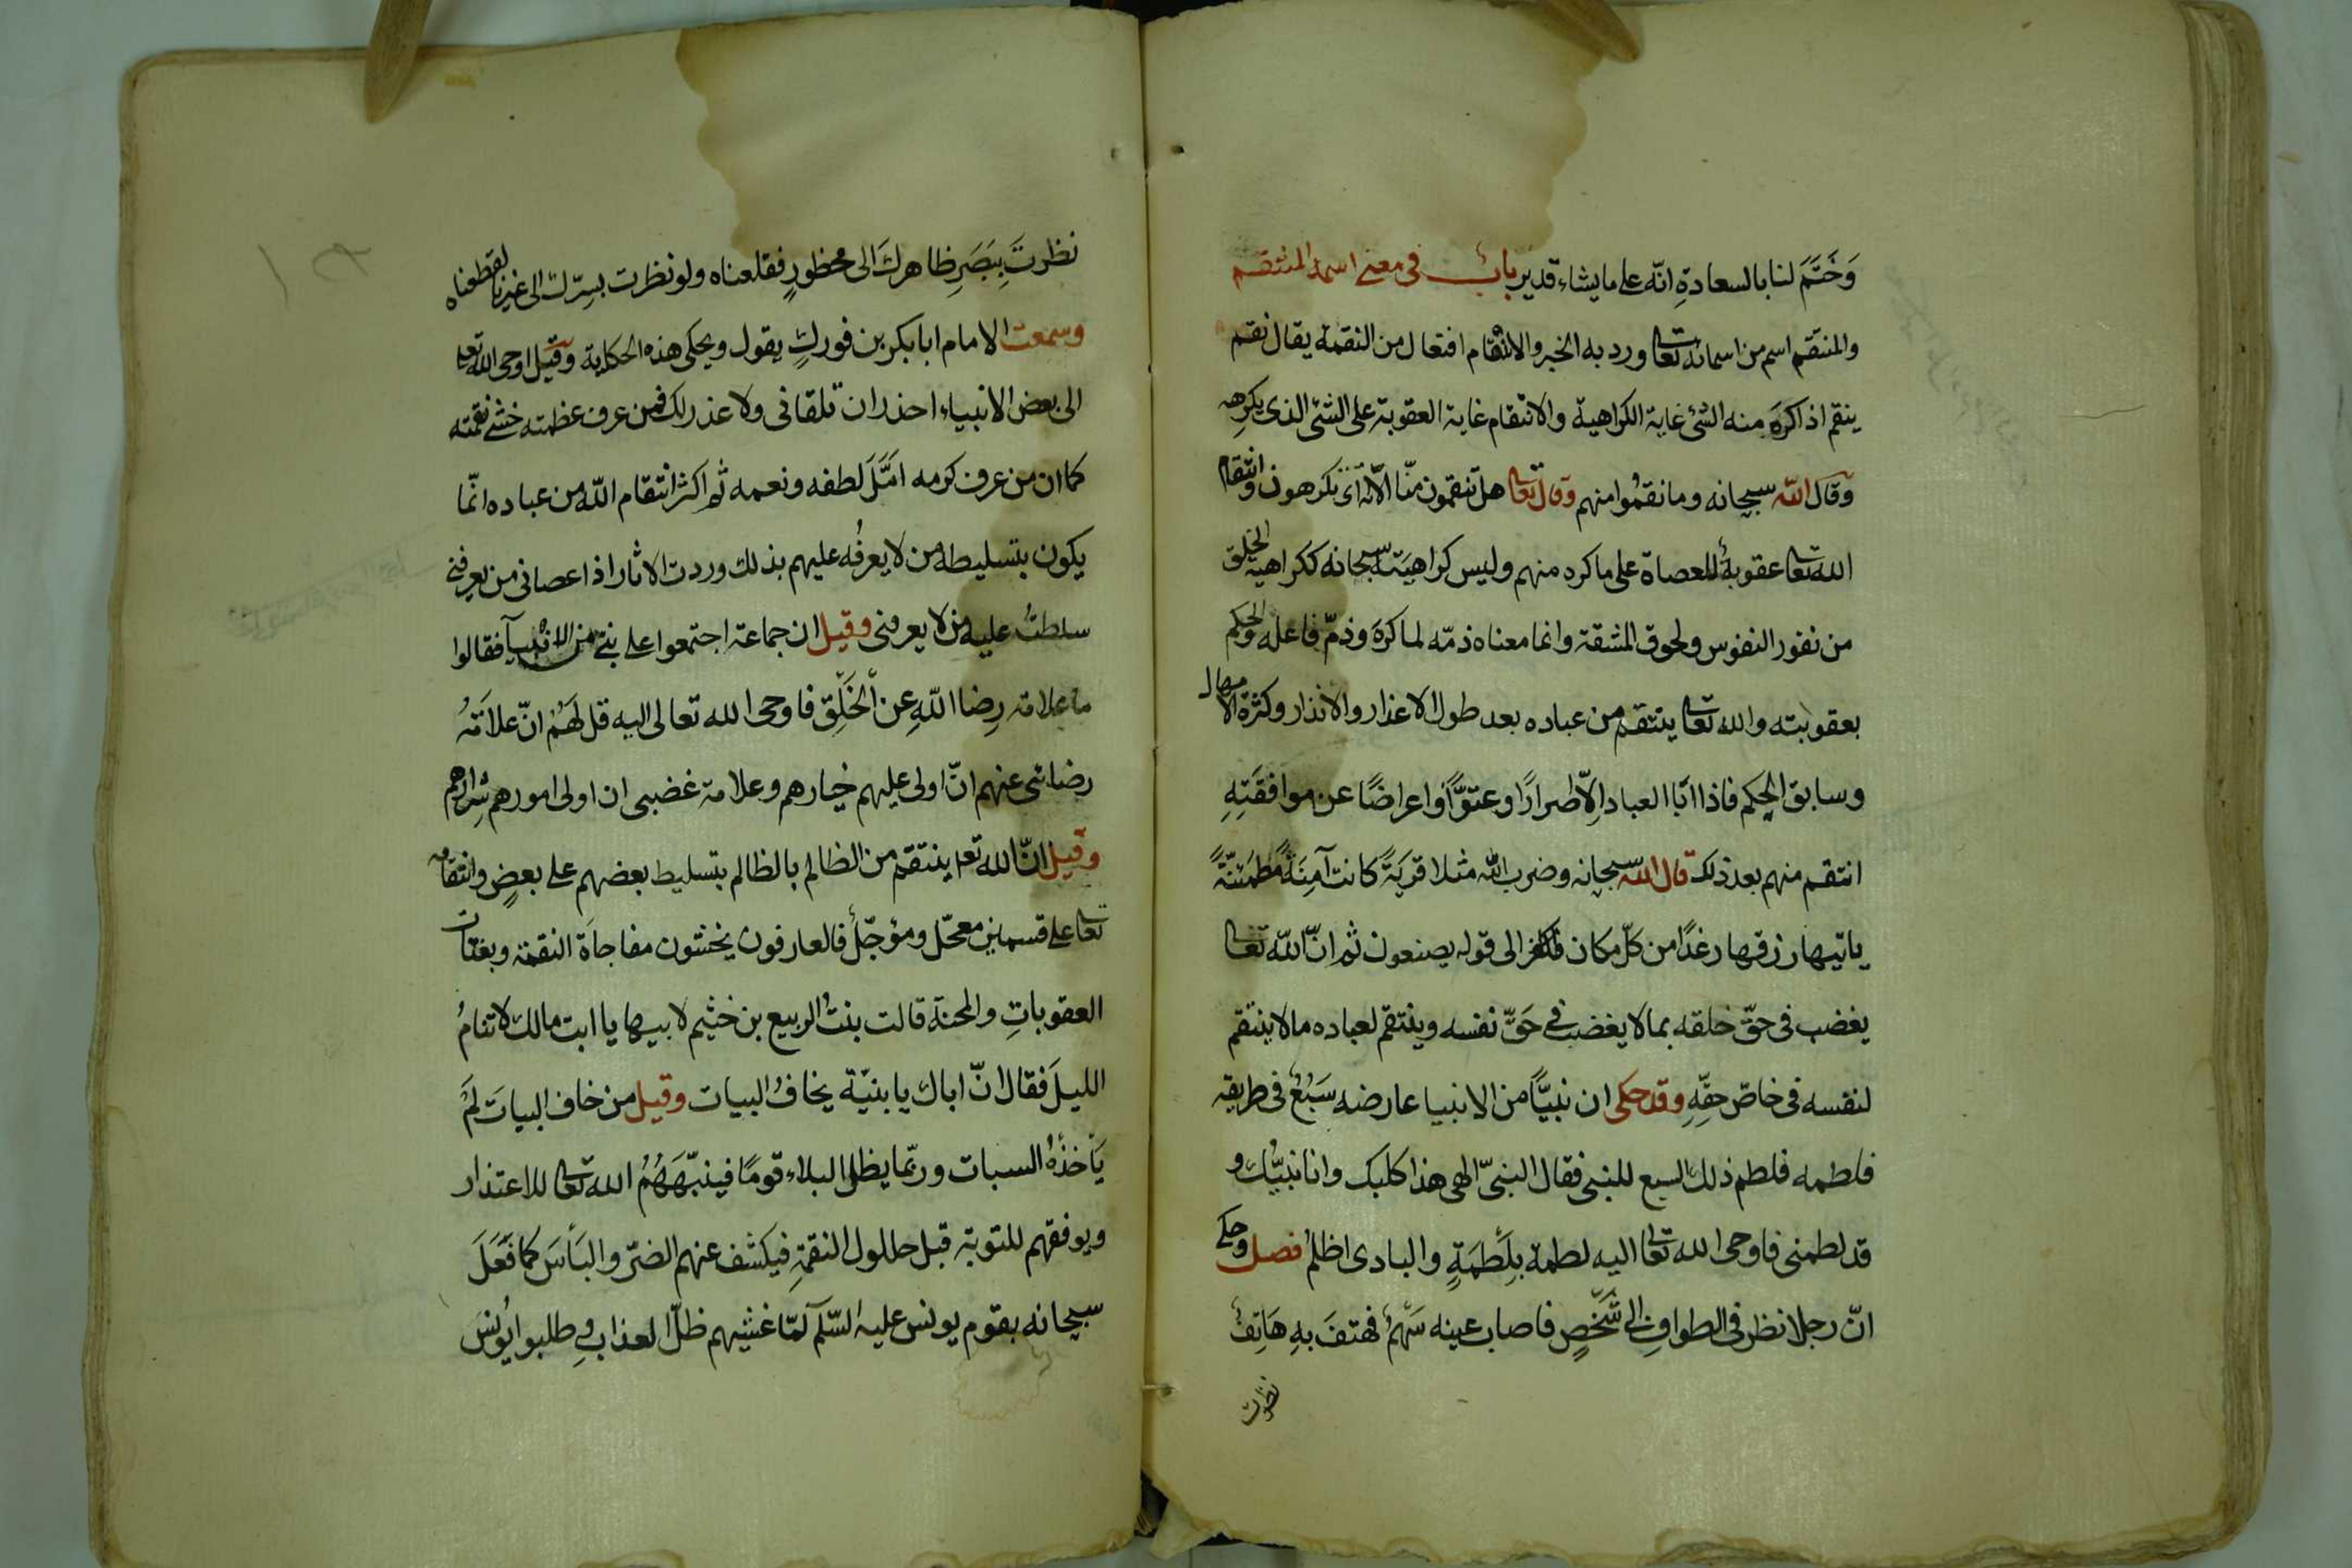 وَخَتَمَ لنا بالسعادةِ انّه على ما يشاء قدير بابٌ فى معنى اسمه المنتقم
والمنتقم اسم من اسمائه تعالى ورد به الخبر والانتقام افتعال من النقمة يقال نقم
ينقم اذا كرَه منه الشئ غاية الكراهية والانتقام غاية العقوبة على الشئ الذى يكرهه
وقال الله سبحانه وما نقمُوا منهم وقال تعالى هل تنقمون منّا الّا اى تكرهون وانتقام
الله تعالى عقوبةٌ للعصاة على ما كره منهم وليس كراهيَته سبحانه ككراهية الخلق
من نفور النفوس ولحوق المشقة وانما معناه ذمّه لما كرهَ وذمّ فاعله والحكم
بعقوبته والله تعالى ينتقم من عباده بعد طول الاعذار والانذار وكثرة الامهال
وسابق الحكم فاذا ابَا العباد اِلّا اصرارًا وعتوًّا واعراضًا عن موافقَتِهِ
انتقم منهم بعد ذلك قال الله سبحانه وضرب الله مثلا قريَةً كانت آمِنَةً مُطمَئنّةً
ياتيها رزقها رغدًا من كلّ مكان فكفر الى قوله يصنعون ثم انّ اللّه تعالى
يغضب فى حقّ خلقه بما لا يغضب فى حَقّ نفسه وينتقم لعباده ما لا ينتقم
لنفسه فى خاصّ حقِّهِ وقد حكى ان نبيًّا من الانبيا عارضه سَبُعٌ فى طريقه
فلطمه فلطم ذلك السبع للنبى فقال النبىّ الهى هذا كلبك وانا نبيّك و
قد لطمنى فاوحى الله تعالى اليه لطمة بلَطمَةٍ والبادى اظلم فصل وحكى
انّ رجلا نظر فى الطوافِ الى شَخصٍ فاصاب عينه سَهمٌ فهتفَ بهِ هَاتِفٌ
نظرت
نظرتَ بِبَصَرِ ظاهركَ الى محظورٍ فقلعناه ولو نظرت بسِرّك الى غيرنا لقطعناه
وسمعت الامام ابا بكر بن فوركٍ يقول ويحكى هذه الحكاية وقيل اوحى الله تعا
الى بعض الانبياء احذر ان تلقانى ولا عذر لك فمن عرف عظمته خشى نقمته
كما ان من عرف كرمه امَّلَ لطفه ونعمه ثم اكثر انتقام اللّه من عباده انّما
يكون بتسليطه من لا يعرفُه عليهم بذلك وردت الاثار اذا عصانى من يعرفنى
سلطتُ عليه من لا يعرفنى وقيل ان جماعة اجتمعوا على نبىّ من الانبيآ فقالوا
ما علامة رِضا اللّهِ عن الخَلْق فاوحى الله تعالى اليه قل لَهُم انّ علامَةُ
رضائى عنهم انّ اولى عليهم خيارهم وعلامة غضبى ان اولى امورهم شِرارهم
وقيل انّ الله تعا ينتقم من الظالم بالظالم بتسليط بعضهم على بعضٍ وانتقامه
تعالى على قسمين معجّل ومؤجّلٌ فالعارفون يخشون مفاجاة النقمة وبغتات
العقوباتِ والمحنة قالت بنتُ الربيع بن خثيم لابيها يا ابت مالك لا تنامُ
الليلَ فقال انّ اباك يا بنيّة يخافُ البيات وقيل من خاف البياتَ لَم
يَأخذهُ السبات وربّما يظل البلاء قومًا فينبّهَهُمُ الله تعالى للاعتذار
ويوفقهم للتوبة قبل حلول النقمةِ فيكشف عنهم الضرّ والبَأسَ كما فَعَلَ
سبحانه بقوم يونس عليه السّلَم لمّا غشيهم ظلّ العذابِ وطلبوا يُونسَ